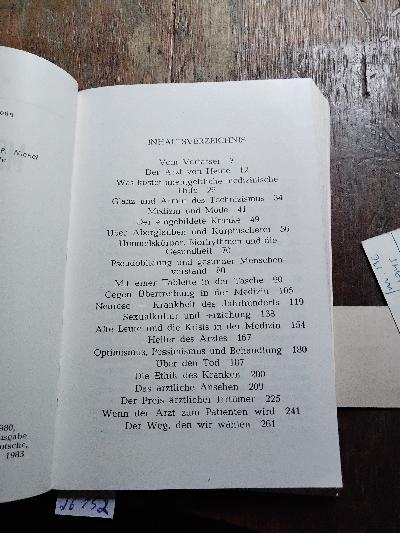 INHALTSVERZEICHNIS
Vom Verfasser 7
Der Arzt von Heute 12
Was kostet unentgeltliche medizinische
Hilfe 26
Glanz und Armut des Technizismus 34
Medizin und Mode 41
Der eingebildete Kranke 49
Über Aberglauben und Kurpfuscherei 56
Himmelskörper, Biorhythmen und die
Gesundheit 70
Pseudobildung und gesunder Menschen-
verstand 80
Mit einer Tablette in der Tasche 90
Gegen Übertreibung in der Medizin 105
Neurose — Krankheit des Jahrhunderts 119
Sexualkultur und -erziehung 138
Alte Leute und die Krisis in der Medizin 154
Helfer des Arztes 167
Optimismus, Pessimismus und Behandlung 180
Über den Tod 187
Die Ethik des Kranken 200
Das ärztliche Ansehen 209
Der Preis ärztlicher Irrtümer 225
Wenn der Arzt zum Patienten wird 241
Der Weg, den wir wählen 261
P. Nickel
1980,
usgabe
utsche,
1983